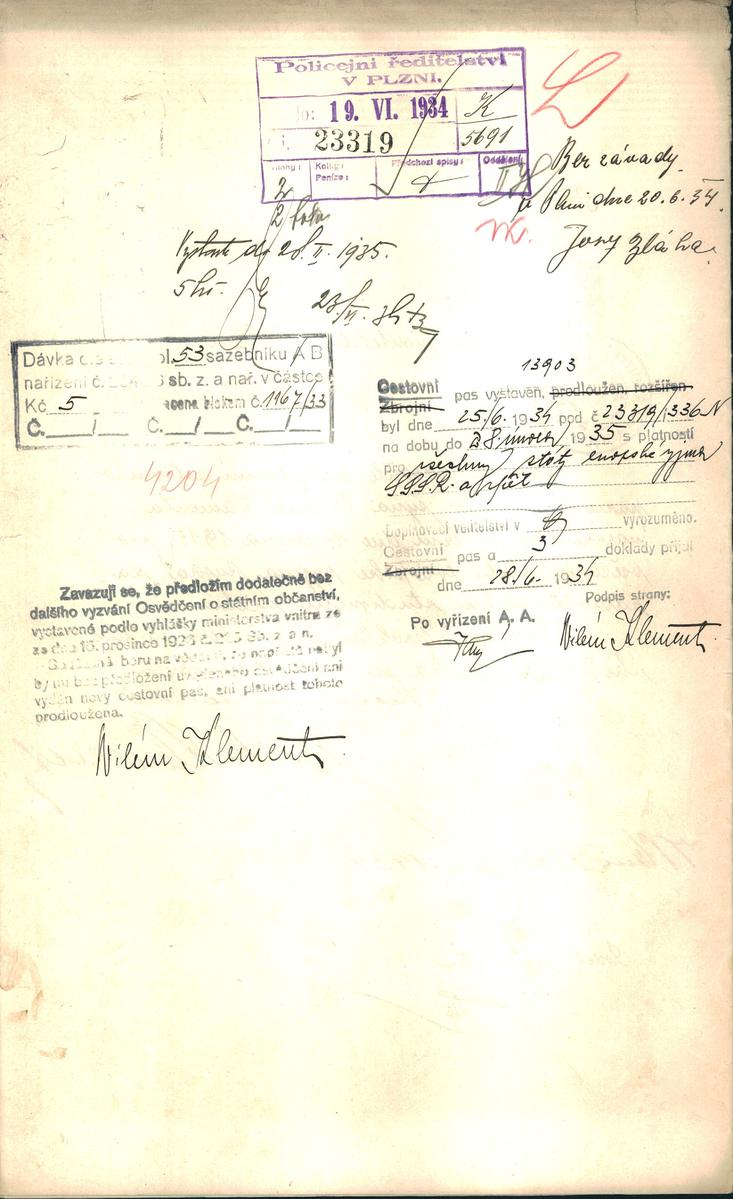 Policejní ředitelství
V PLZNI.
19. VI. 1934
K
23319
5691
Kolky:
Peníze:
Předchozí spisy:
Oddělení:
2
2 foto
Bez závady.
v Plzni dne 20.6.34.
28. II. 1935.
5 kč.
Dávka pol. 53 sazebníku A B
nařízení č. sb. z. a nař. v částce
Kč 5 č. 1167/33
Č. / Č. / Č. /
4204
13903
Cestovní pas vystaven, prodloužen, rozšířen
Zbrojní
byl dne 25/6. 1934 pod č 23319/336 N
na dobu do 28. února 1935 s platností
pro všechny státy evropské vyjma
S.S.S.R. a zpět
Doplňovací velitelství v vyrozuměno.
Cestovní pas a 3 doklady přijal
Zbrojní
dne 28/6. 1934
Podpis strany:
Po vyřízení A. A.
Vilém Klement
Zavazuji se, že předložím dodatečně bez
dalšího vyzvání Osvědčení o státním občanství,
vystavené podle vyhlášky ministerstva vnitra ze
ze dne 15. prosince 1928 č. Sb. z. a n.
beru na vědomí, že napříště nebyl
by mi bez předložení uvedeného osvědčení ani
vydán nový cestovní pas, ani platnost tohoto
prodloužena.
Vilém Klement